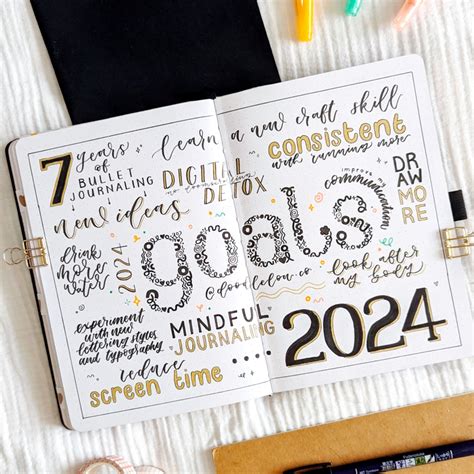 7 years of
BULLET
JOURNALING
new ideas
learn a new craft skill
DIGITAL
DETOX
CONSISTENT
with running more
improve
communication
DRAW
MORE
drink
more
water
2024
goals
@doodledon.co
look after
my body
experiment
with new
lettering styles
and typography
MINDFUL
JOURNALING
reduce
screen time
2024